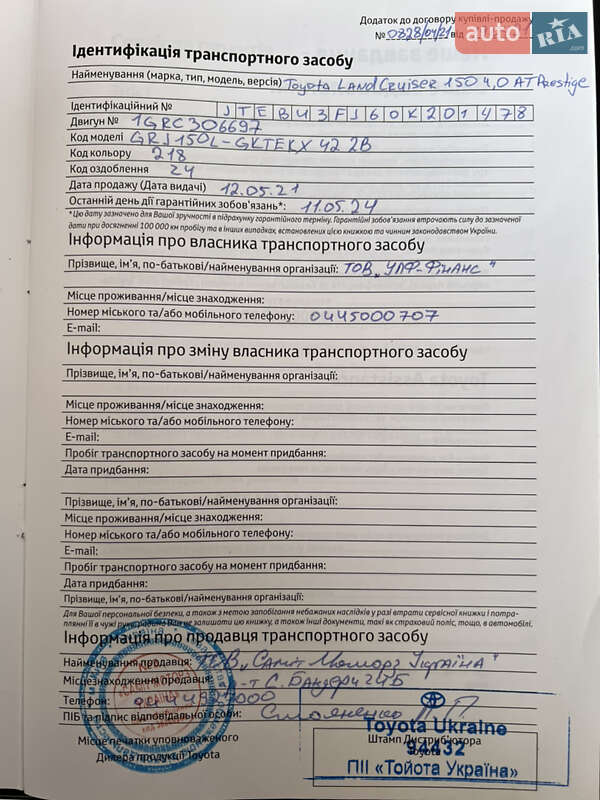 Додаток до договору купівлі-продажу
№ 0328/04/21 від
auto RIA.com
Ідентифікація транспортного засобу
Найменування (марка, тип, модель, версія) Toyota Land Cruiser 150 4,0 AT Prestige
Ідентифікаційний № JTEBU3FJ60K201478
Двигун № 1GRC306697
Код моделі GRJ150L-GKTEKX 42 2B
Код кольору 218
Код оздоблення 24
Дата продажу (Дата видачі) 12.05.21
Останній день дії гарантійних зобов'язань*: 11.05.24
* Цю дату зазначено для Вашої зручності в підрахунку гарантійного терміну. Гарантійні зобов'язання втрачають силу до зазначеної
дати при досягненні 100 000 км пробігу та в інших випадках, встановлених цією книжкою та чинним законодавством України.
Інформація про власника транспортного засобу
Прізвище, ім'я, по-батькові/найменування організації: ТОВ „УЛФ-Фінанс"
Місце проживання/місце знаходження:
Номер міського та/або мобільного телефону: 0445000707
E-mail:
Інформація про зміну власника транспортного засобу
Прізвище, ім'я, по-батькові/найменування організації:
Місце проживання/місце знаходження:
Номер міського та/або мобільного телефону:
E-mail:
Пробіг транспортного засобу на момент придбання:
Дата придбання:
Прізвище, ім'я, по-батькові/найменування організації:
Місце проживання/місце знаходження:
Номер міського та/або мобільного телефону:
E-mail:
Пробіг транспортного засобу на момент придбання:
Дата придбання:
Прізвище, ім'я, по-батькові/найменування організації:
Для Вашої персональної безпеки, а також з метою запобігання небажаних наслідків у разі втрати сервісної книжки і потра-
плянні її в чужі руки, не залишати цю книжку, а також інші документи, такі як страховий поліс, тощо, в автомобілі.
Інформація про продавця транспортного засобу
Найменування продавця: ТОВ „Саміт Моторз Україна"
Місцезнаходження продавця: -т С. Бандери 24Б
Телефон:
ПІБ та підпис відповідальної особи: Стояненко
Toyota Ukraine
Місце печатки уповноваженого
Штамп Дистриб'ютора
94432
Дилера продукції Toyota
Toyota
ПІІ «Тойота Україна»